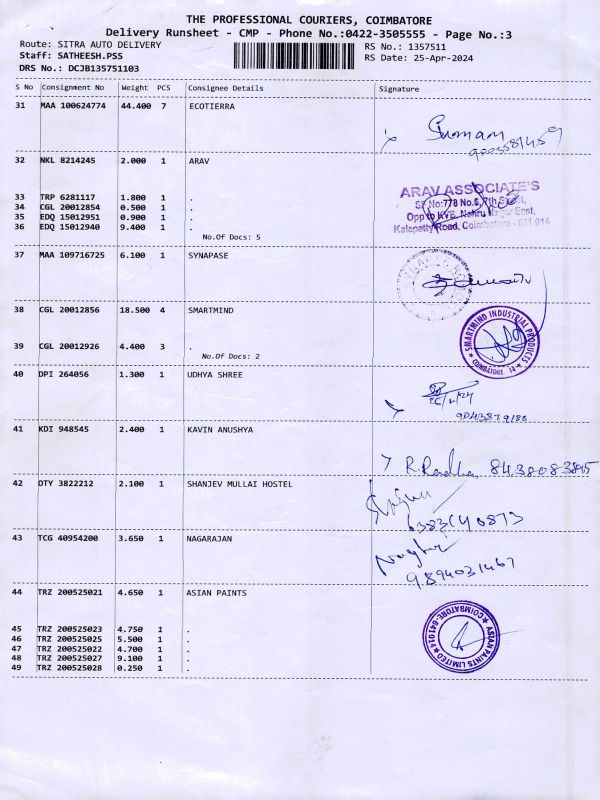 THE PROFESSIONAL COURIERS, COIMBATORE
Delivery Runsheet - CMP - Phone No.:0422-3505555 - Page No.:3
Route: SITRA AUTO DELIVERY
RS No.: 1357511
Staff: SATHEESH.PSS
RS Date: 25-Apr-2024
DRS No.: DCJB135751103
S No Consignment No Weight PCS Consignee Details Signature
31 MAA 100624774 44.400 7 ECOTIERRA
32 NKL 8214245 2.000 1 ARAV
ARAV ASSOCIATE'S
SF No:778 No.6, 7th Street,
Opp to KVB, Nehru Nagar East,
Kalapatty Road, Coimbatore - 641 014
33 TRP 6281117 1.800 1 .
34 CGL 20012854 0.500 1 .
35 EDQ 15012951 0.900 1 .
36 EDQ 15012940 9.400 1 .
No.Of Docs: 5
37 MAA 109716725 6.100 1 SYNAPASE
38 CGL 20012856 18.500 4 SMARTMIND
SMARTMIND INDUSTRIAL PRODUCTS
COIMBATORE 14
39 CGL 20012926 4.400 3 .
No.Of Docs: 2
40 DPI 264056 1.300 1 UDHYA SHREE
41 KDI 948545 2.400 1 KAVIN ANUSHYA
R. Radha, 8438083895
42 OTY 3822212 2.100 1 SHANJEV MULLAI HOSTEL
43 TCG 40954200 3.650 1 NAGARAJAN
9894031467
44 TRZ 200525021 4.650 1 ASIAN PAINTS
ASIAN PAINTS LIMITED
COIMBATORE-641014
45 TRZ 200525023 4.750 1 .
46 TRZ 200525025 5.500 1 .
47 TRZ 200525022 4.700 1 .
48 TRZ 200525027 9.100 1 .
49 TRZ 200525028 0.250 1 .